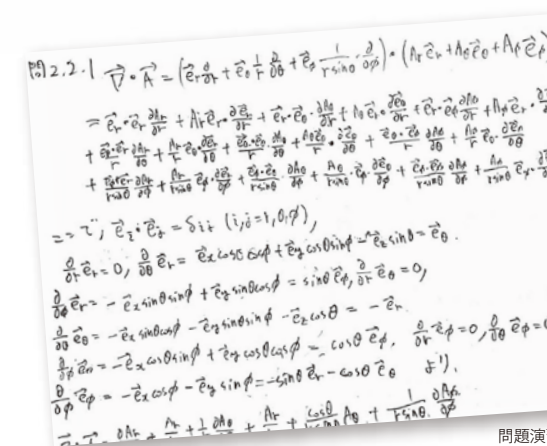 問2.2.1 ∇⃗・A⃗ = (e⃗r ∂/∂r + e⃗θ 1/r ∂/∂θ + e⃗φ 1/(r sinθ) ∂/∂φ)・(Ar e⃗r + Aθ e⃗θ + Aφ e⃗φ)
= e⃗r・e⃗r ∂Ar/∂r + Ar e⃗r・∂e⃗r/∂r + e⃗r・e⃗θ ∂Aθ/∂r + Aθ e⃗r・∂e⃗θ/∂r + e⃗r・e⃗φ ∂Aφ/∂r + Aφ e⃗r・
+ e⃗θ・e⃗r/r ∂Ar/∂θ + Ar/r e⃗θ・∂e⃗r/∂θ + e⃗θ・e⃗θ/r ∂Aθ/∂θ + e⃗θ・e⃗φ/r ∂Aφ/∂θ + Aφ/r e⃗θ・
+ e⃗φ・e⃗r/(r sinθ) ∂Ar/∂φ + Ar/(r sinθ) e⃗φ・∂e⃗r/∂φ + e⃗φ・e⃗θ/(r sinθ) ∂Aθ/∂φ + Aθ/(r sinθ) e⃗φ・∂e⃗θ/∂φ + e⃗φ・e⃗φ/(r sinθ) ∂Aφ/∂φ + Aφ/(r sinθ) e⃗φ・
ここで, e⃗i・e⃗j = δij (i,j=r,θ,φ),
∂/∂r e⃗r = 0, ∂/∂θ e⃗r = e⃗x cosθ cosφ + e⃗y cosθ sinφ - e⃗z sinθ = e⃗θ.
∂/∂φ e⃗r = - e⃗x sinθ sinφ + e⃗y sinθ cosφ = sinθ e⃗φ, ∂/∂r e⃗θ = 0,
∂/∂θ e⃗θ = - e⃗x sinθ cosφ - e⃗y sinθ sinφ - e⃗z cosθ = - e⃗r.
∂/∂φ e⃗θ = - e⃗x cosθ sinφ + e⃗y cosθ cosφ = cosθ e⃗φ, ∂/∂r e⃗φ = 0, ∂/∂θ e⃗φ = 0
∂/∂φ e⃗φ = - e⃗x cosφ - e⃗y sinφ = - sinθ e⃗r - cosθ e⃗θ より,
∂Ar/∂r + Ar/r + 1/r ∂Aθ/∂θ + Ar/r + cosθ/(r sinθ) Aθ + 1/(r sinθ) ∂Aφ/∂φ
問題演